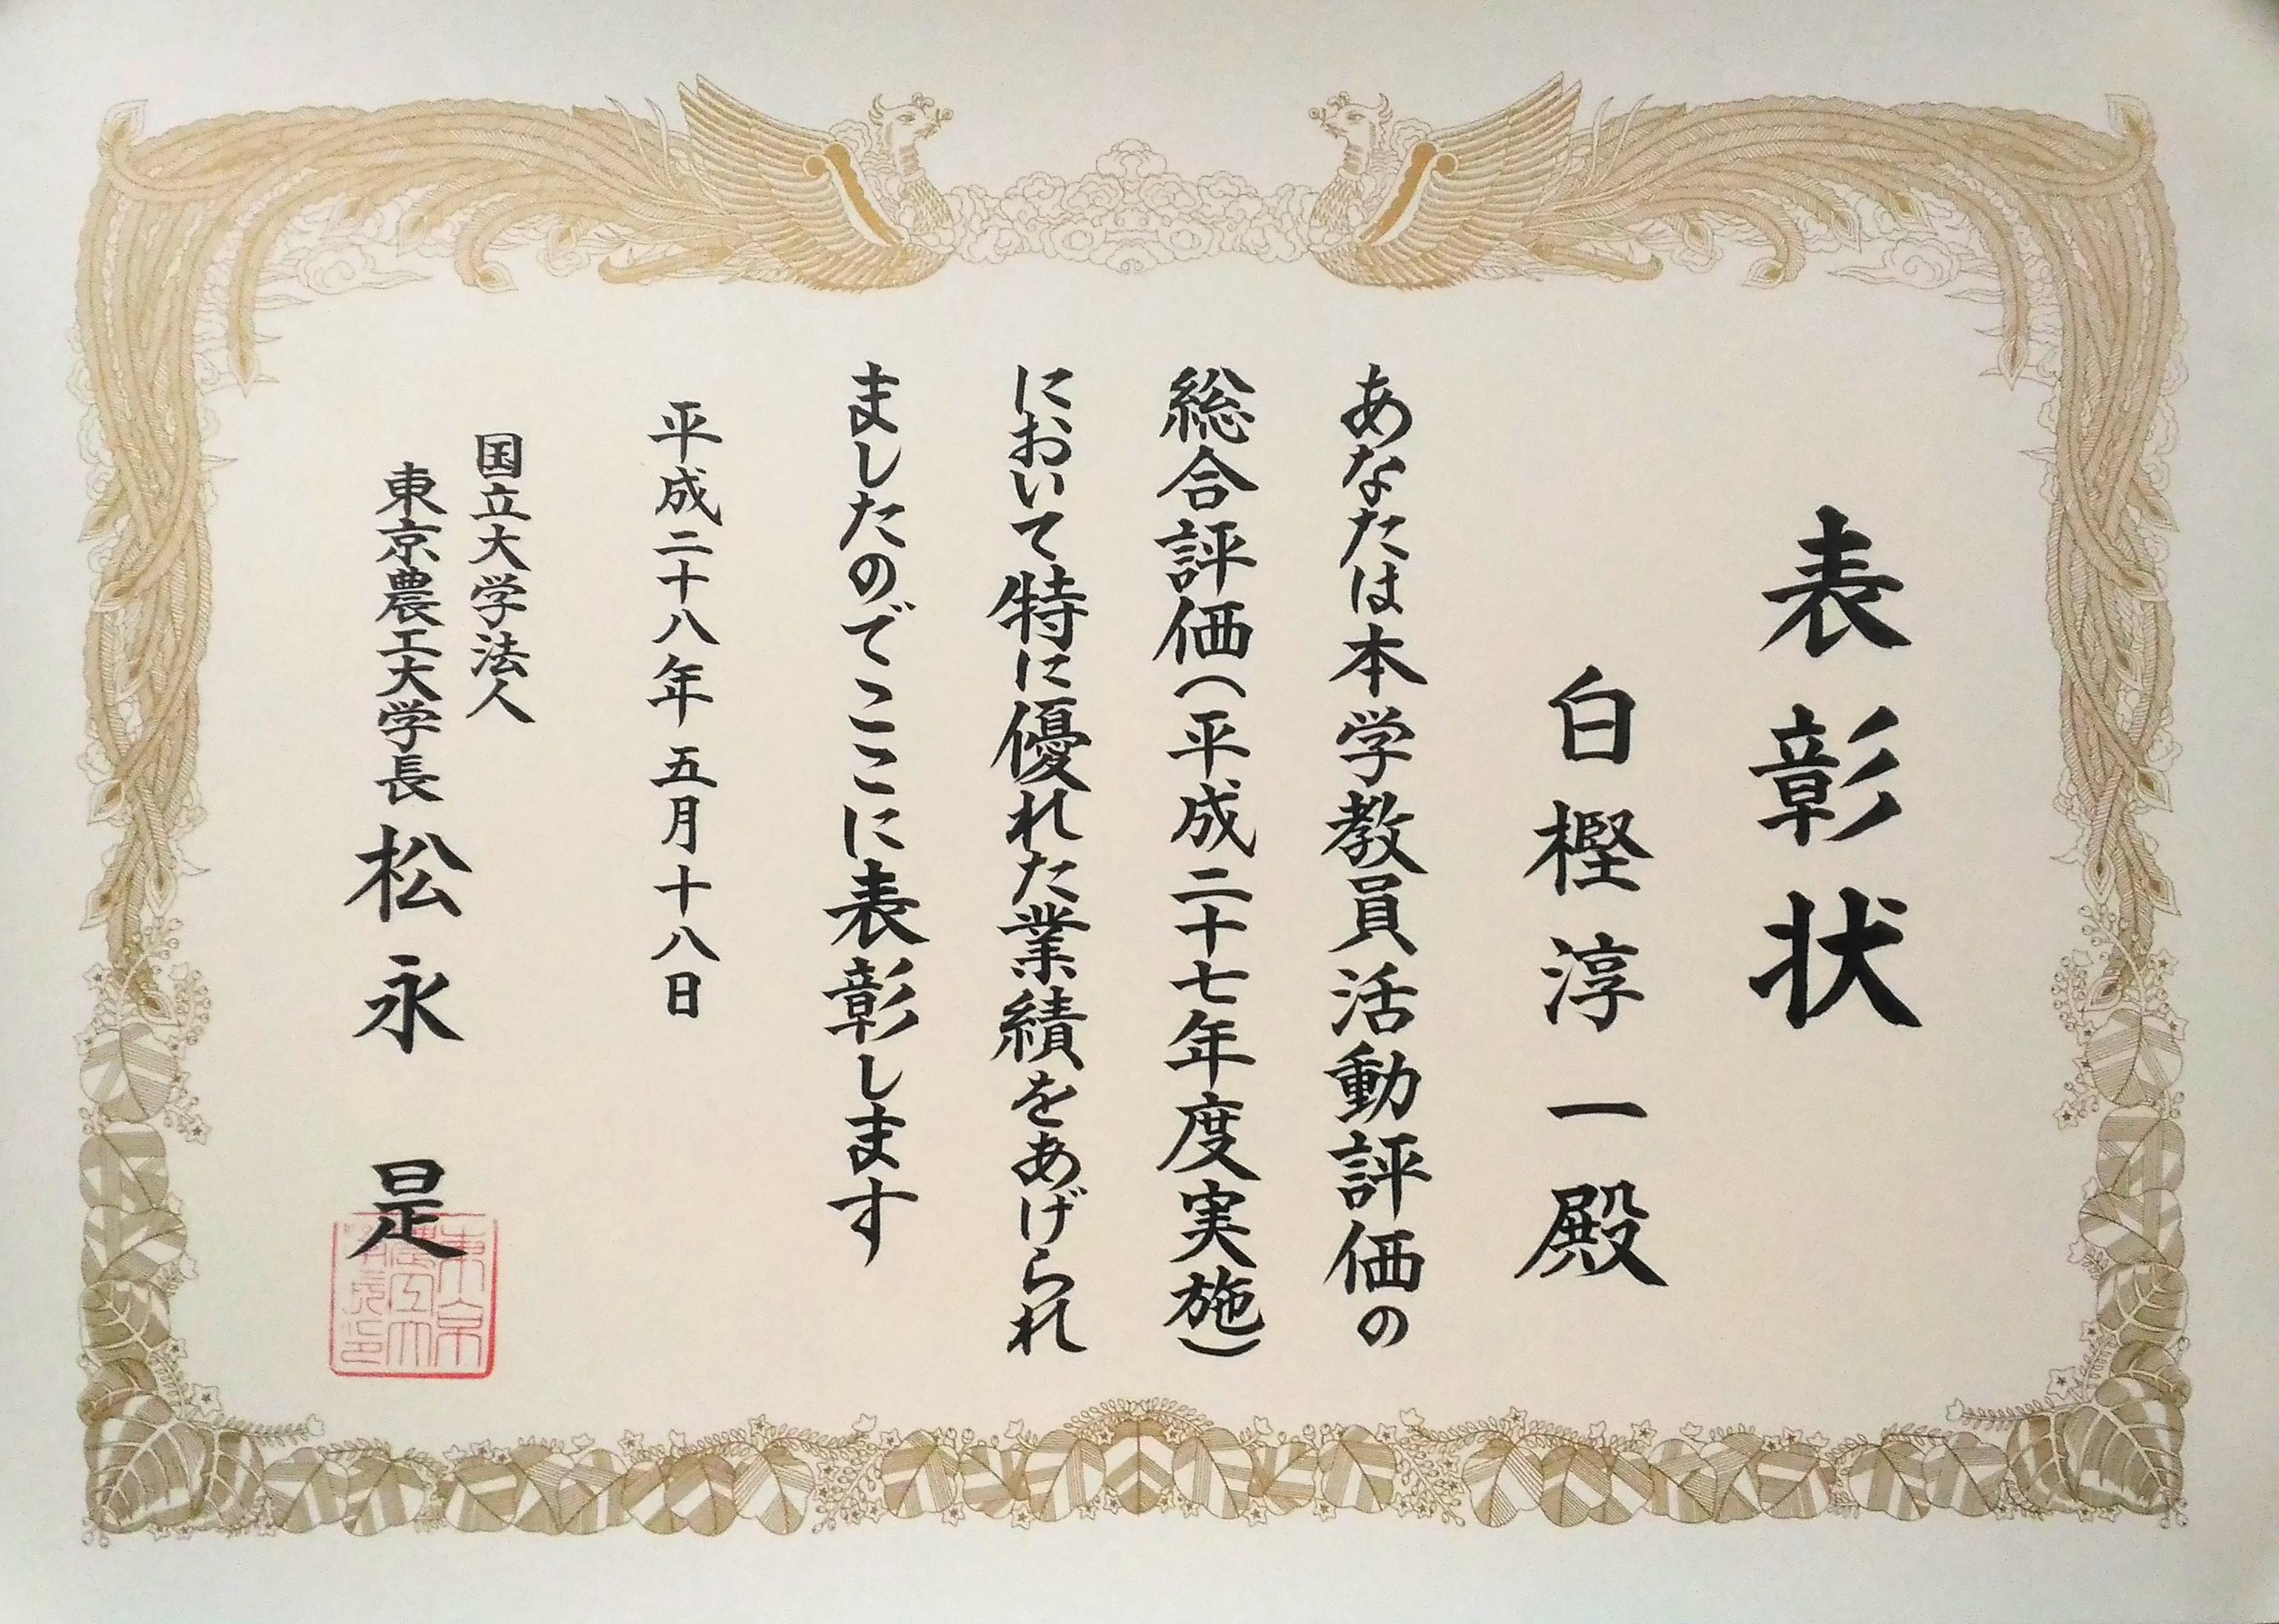 表彰状
白樫淳一殿
あなたは本学教員活動評価の
総合評価(平成二十七年度実施)
において特に優れた業績をあげられ
ましたのでここに表彰します
平成二十八年五月十八日
国立大学法人
東京農工大学長 松永 是
東京
農工大
学長印